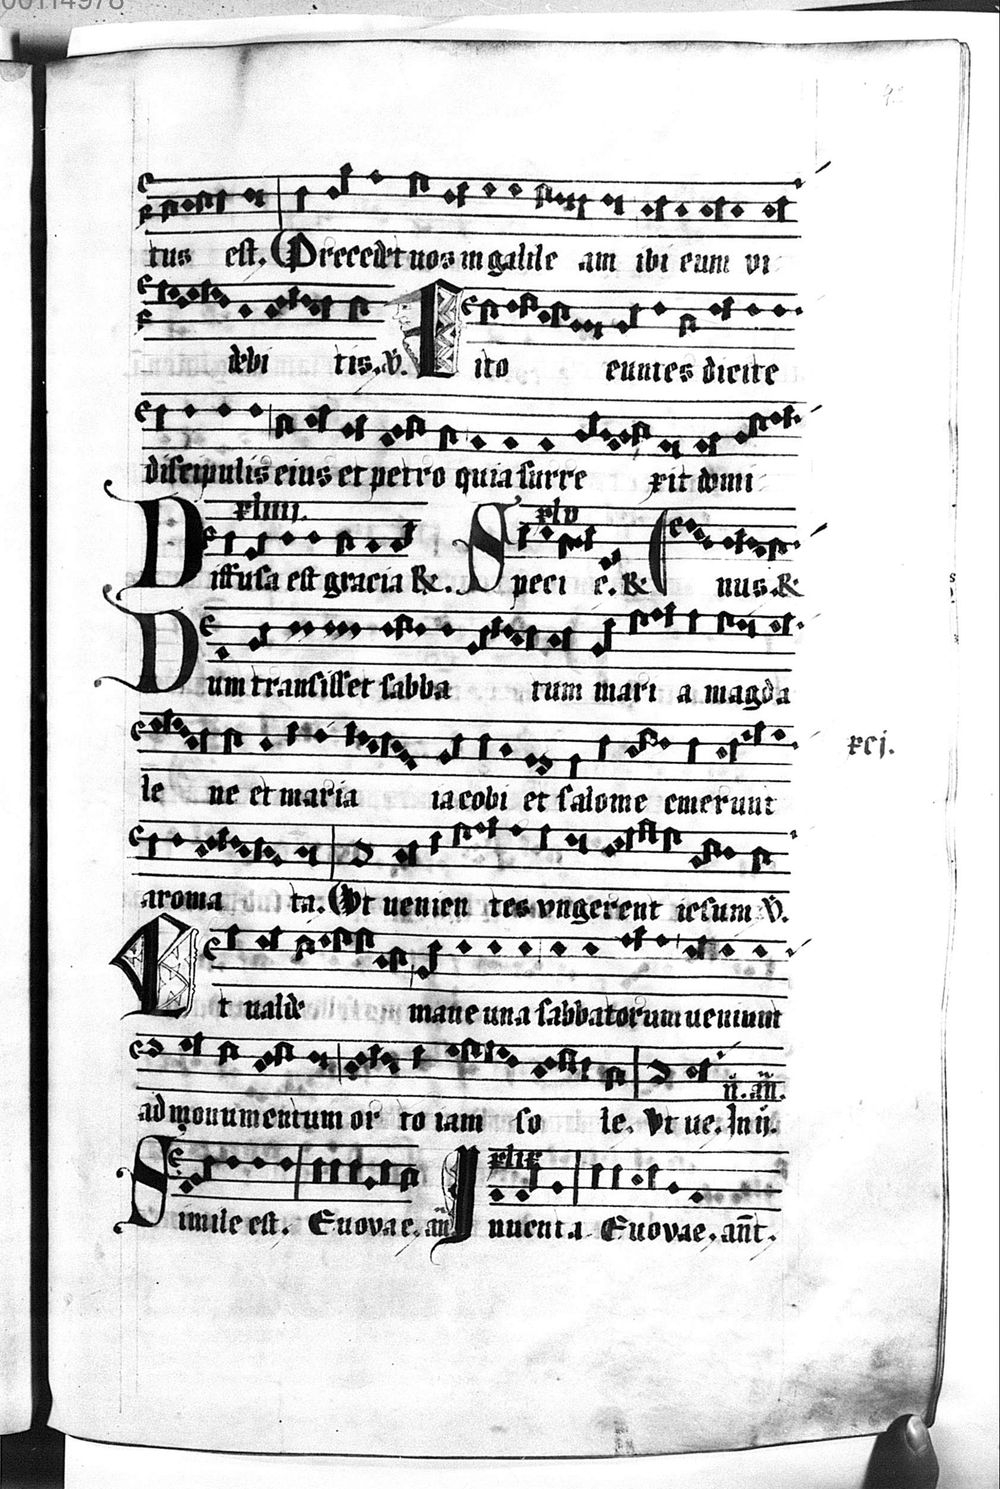 00114978
tus est. Precedet uos in galile am ibi eum vi
debi tis. v̄. Cito euntes dicite
discipulis eius et petro quia surre xit domi
xliiij. xlv
Diffusa est gracia &. Speci e. & nus. &
Dum transisset sabba tum mari a magda
le ne et maria iacobi et salome emerunt
xcj.
aroma ta. Ut uenien tes vngerent iesum v̄.
Et ualde mane una sabbatorum ueniunt
n̄. an̄.
ad monumentum or to iam so le. Vt ue. In ij.
xlix
Simile est. Euovae. an̄ Inuenta Euovae. ant̄.